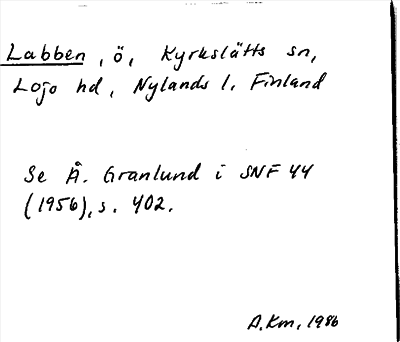 Labben, ö, Kyrkslätts sn,
Lojo hd, Nylands l. Finland
Se Å. Granlund i SNF 44
(1956), s. 402.
A.Km, 1986